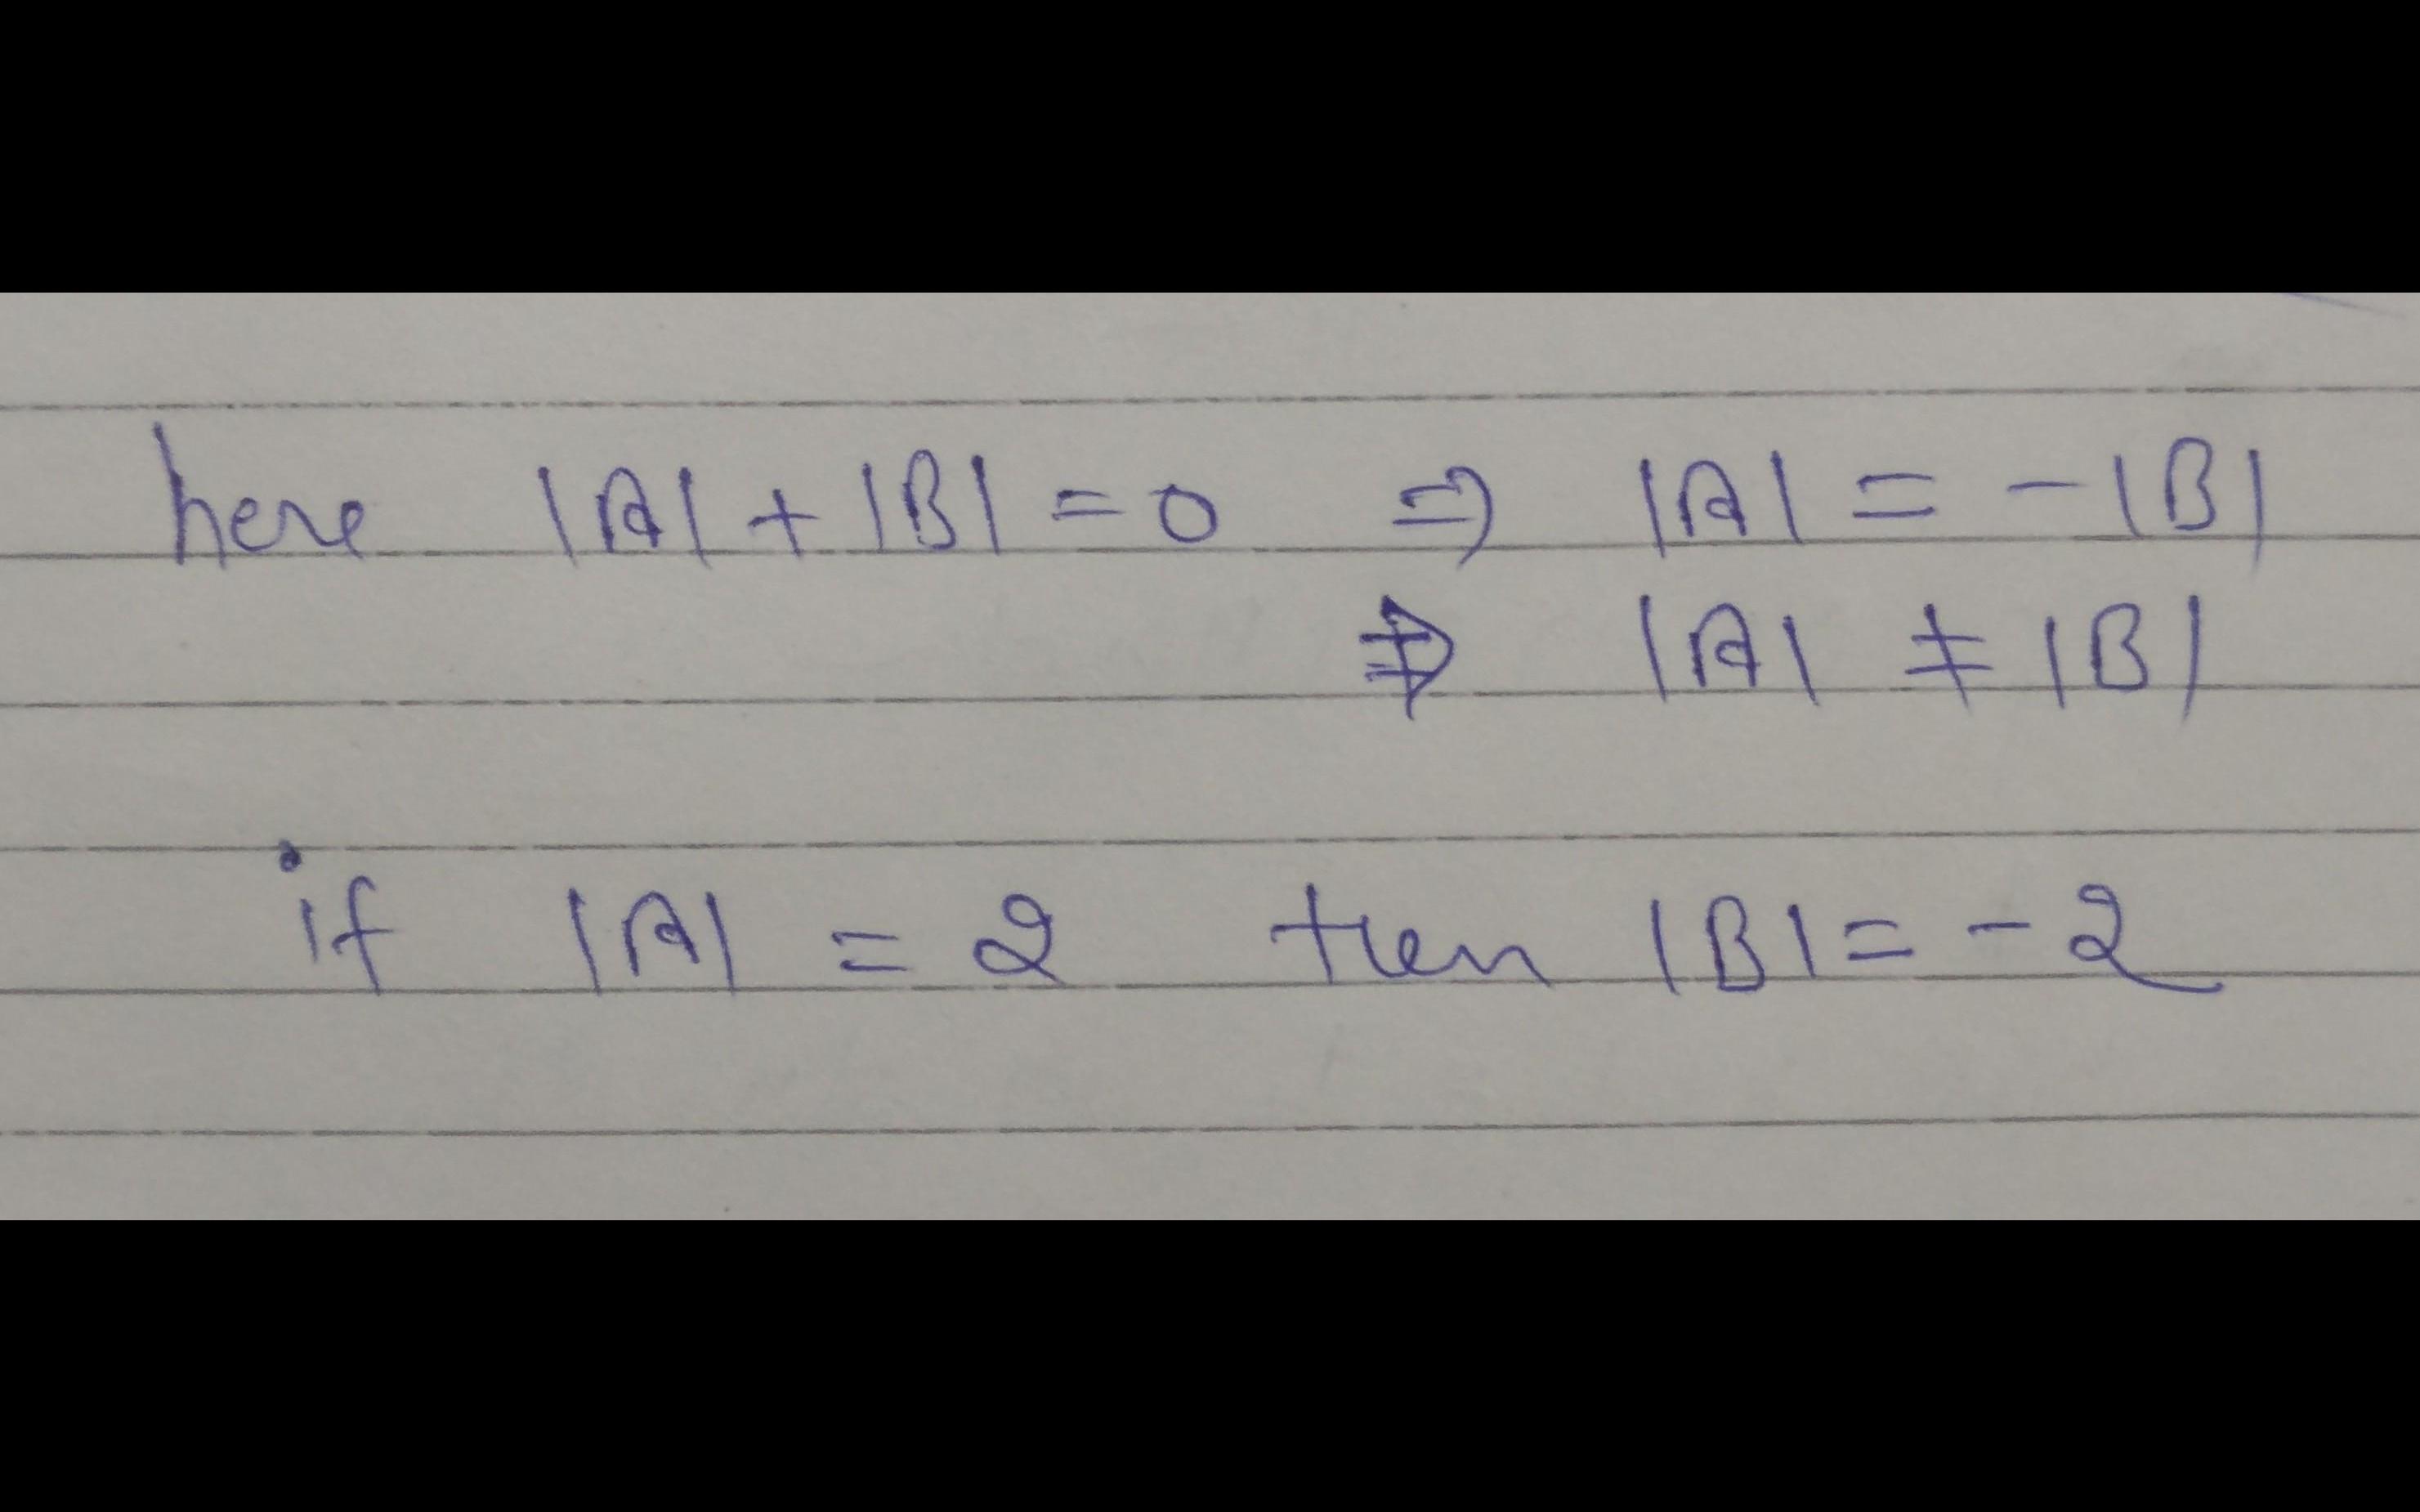 here |A| + |B| = 0 ⇒ |A| = -|B|
⇏ |A| ≠ |B|
if |A| = 2 then |B| = -2